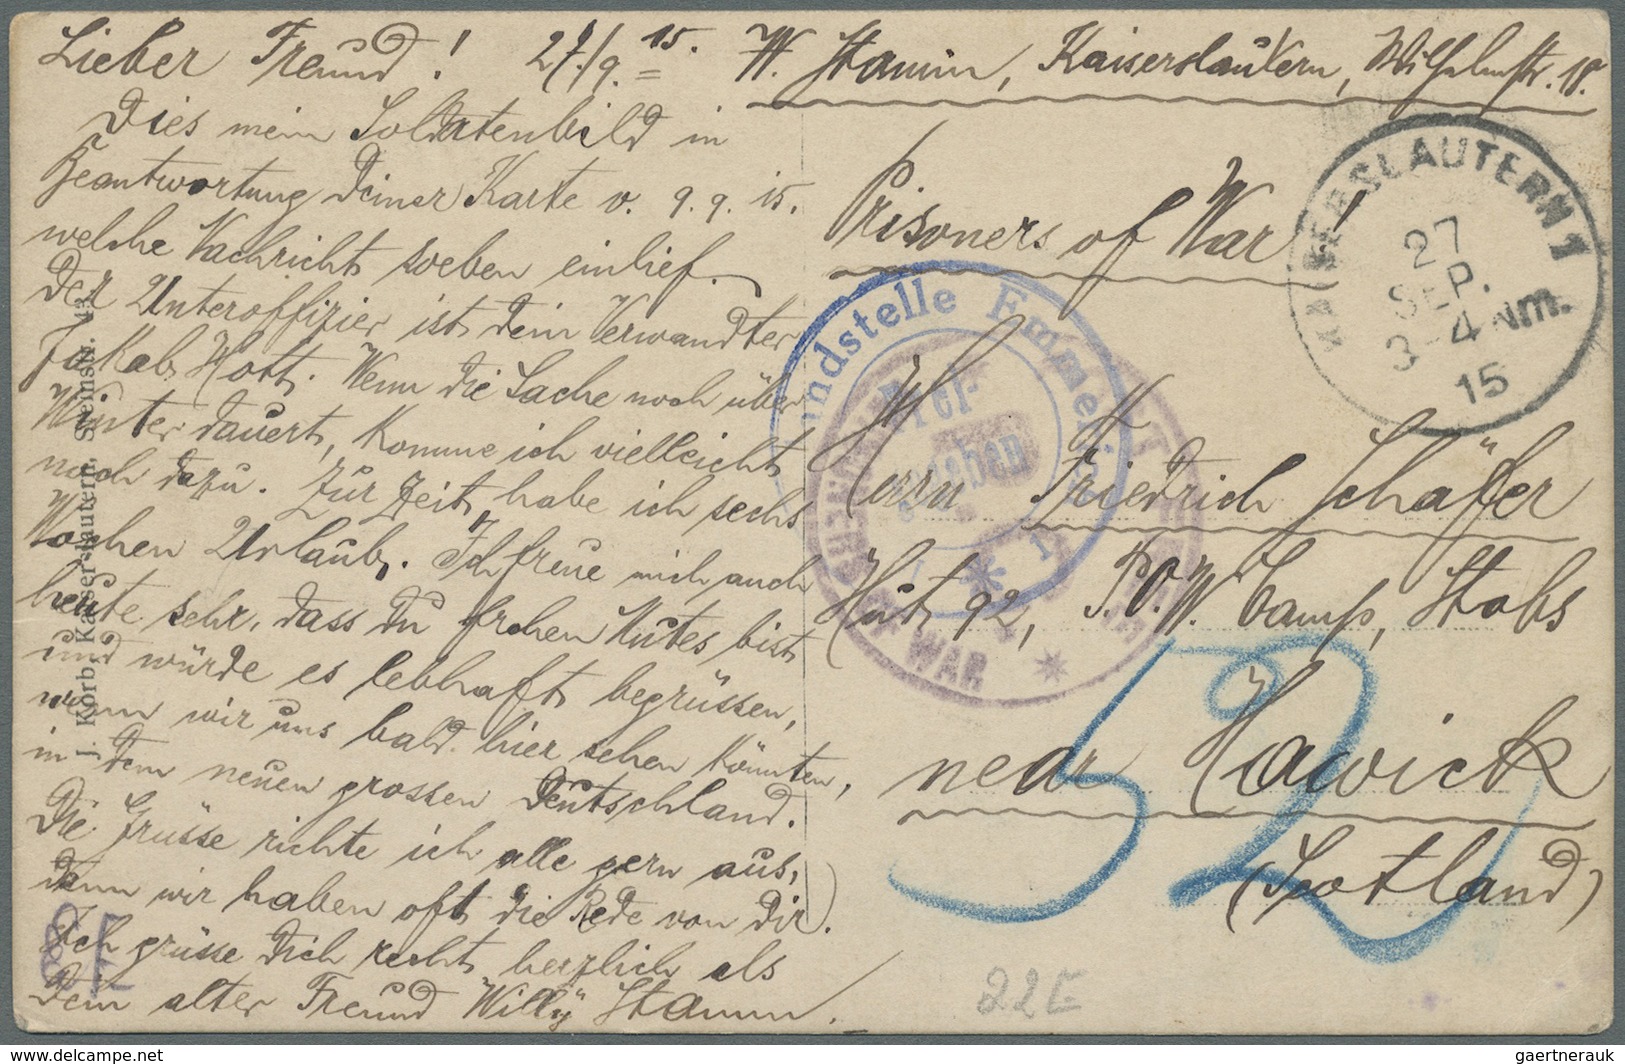 Lieber Freund! 27./9. 15.
Dies mein Soldatenbild in
Beantwortung Deiner Karte v. 9. 9. 15.
welche Nachricht soeben einlief.
Der Unteroffizier ist dein Verwandter
Jakob Hott. Wenn die Sache noch über
Winter dauert, komme ich vielleicht
noch dazu. Zur Zeit habe ich sechs
Wochen Urlaub. Ich freue mich auch
heute sehr, dass du frohen Mutes bist
und würde es lebhaft begrüssen,
wenn wir uns bald hier sehen könnten,
in dem neuen grossen Deutschland.
Die Grüsse richte ich alle gern aus,
denn wir haben oft die Rede von dir.
Ich grüsse Dich recht herzlich als
Dein alter Freund Willy Stamm.
W. Stamm, Kaiserslautern, Wilhelmstr. 18.
Prisoners of War!
Herrn Friedrich Schäfer
Hut 92, P.O.W. Camp, Stobs
near Hawick
(Scotland)
KAISERSLAUTERN 1
27
SEP.
3-4 Nm.
15
OF WAR
52
22E
J. Korb, Kaiserslautern, Steinstr.
www.delcampe.net
gaertnerauk